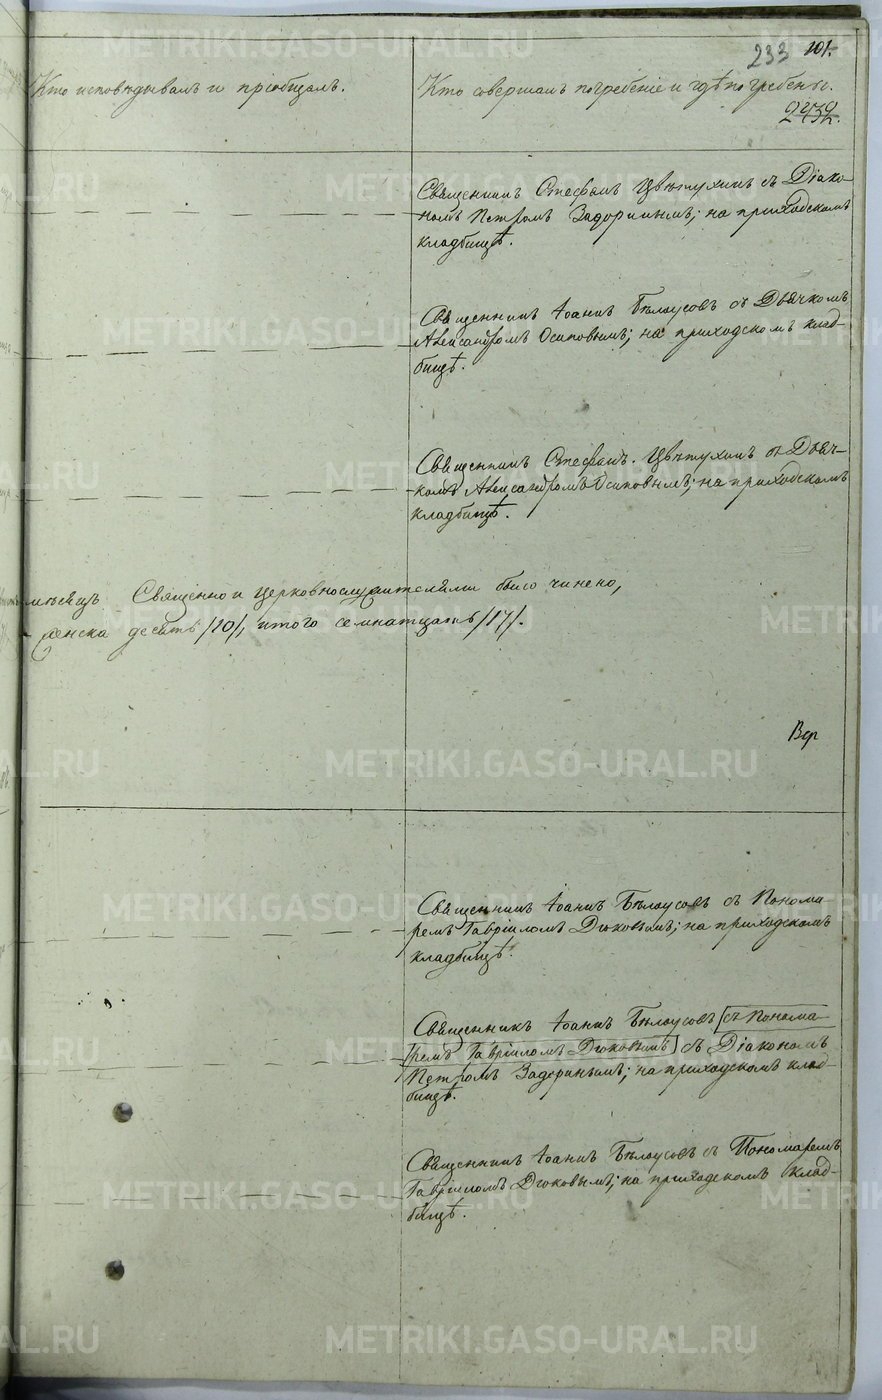 233 101.
Кто исповѣдывалъ и пріобщалъ.
Кто совершалъ погребеніе и гдѣ погребены.
2432.
Священникъ Стефанъ Цвѣтухинъ съ Діако-
номъ Петромъ Задоринымъ; на приходскомъ
кладбищѣ.
Священникъ Іоаннъ Бѣлоусовъ съ Дьячкомъ
Александромъ Осиповымъ; на приходскомъ клад-
бищѣ.
Священникъ Стефанъ. Цвѣтухинъ съ Дьяч-
комъ Александромъ Осиповымъ; на приходскомъ
кладбищѣ.
мѣсяцъ Священно и церковнослужителями было чинено,
женска десять /10/, итого семнатцать /17/.
Вер
Священникъ Іоаннъ Бѣлоусовъ съ Понома
ремъ Гавріиломъ Дюковымъ; на приходскомъ
кладбищѣ.
Священникъ Іоаннъ Бѣлоусовъ [съ Понома-
ремъ Гавріиломъ Дюковымъ] съ Діакономъ
Петромъ Задоринымъ; на приходскомъ клад-
бищѣ.
Священникъ Іоаннъ Бѣлоусовъ съ Пономаремъ
Гавріиломъ Дюковымъ; на приходскомъ клад-
бищѣ.
METRIKI.GASO-URAL.RU